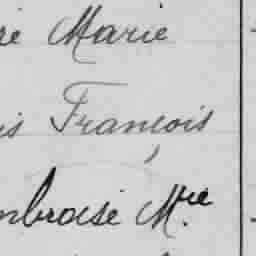 re Marie
is François
mbroise M.re